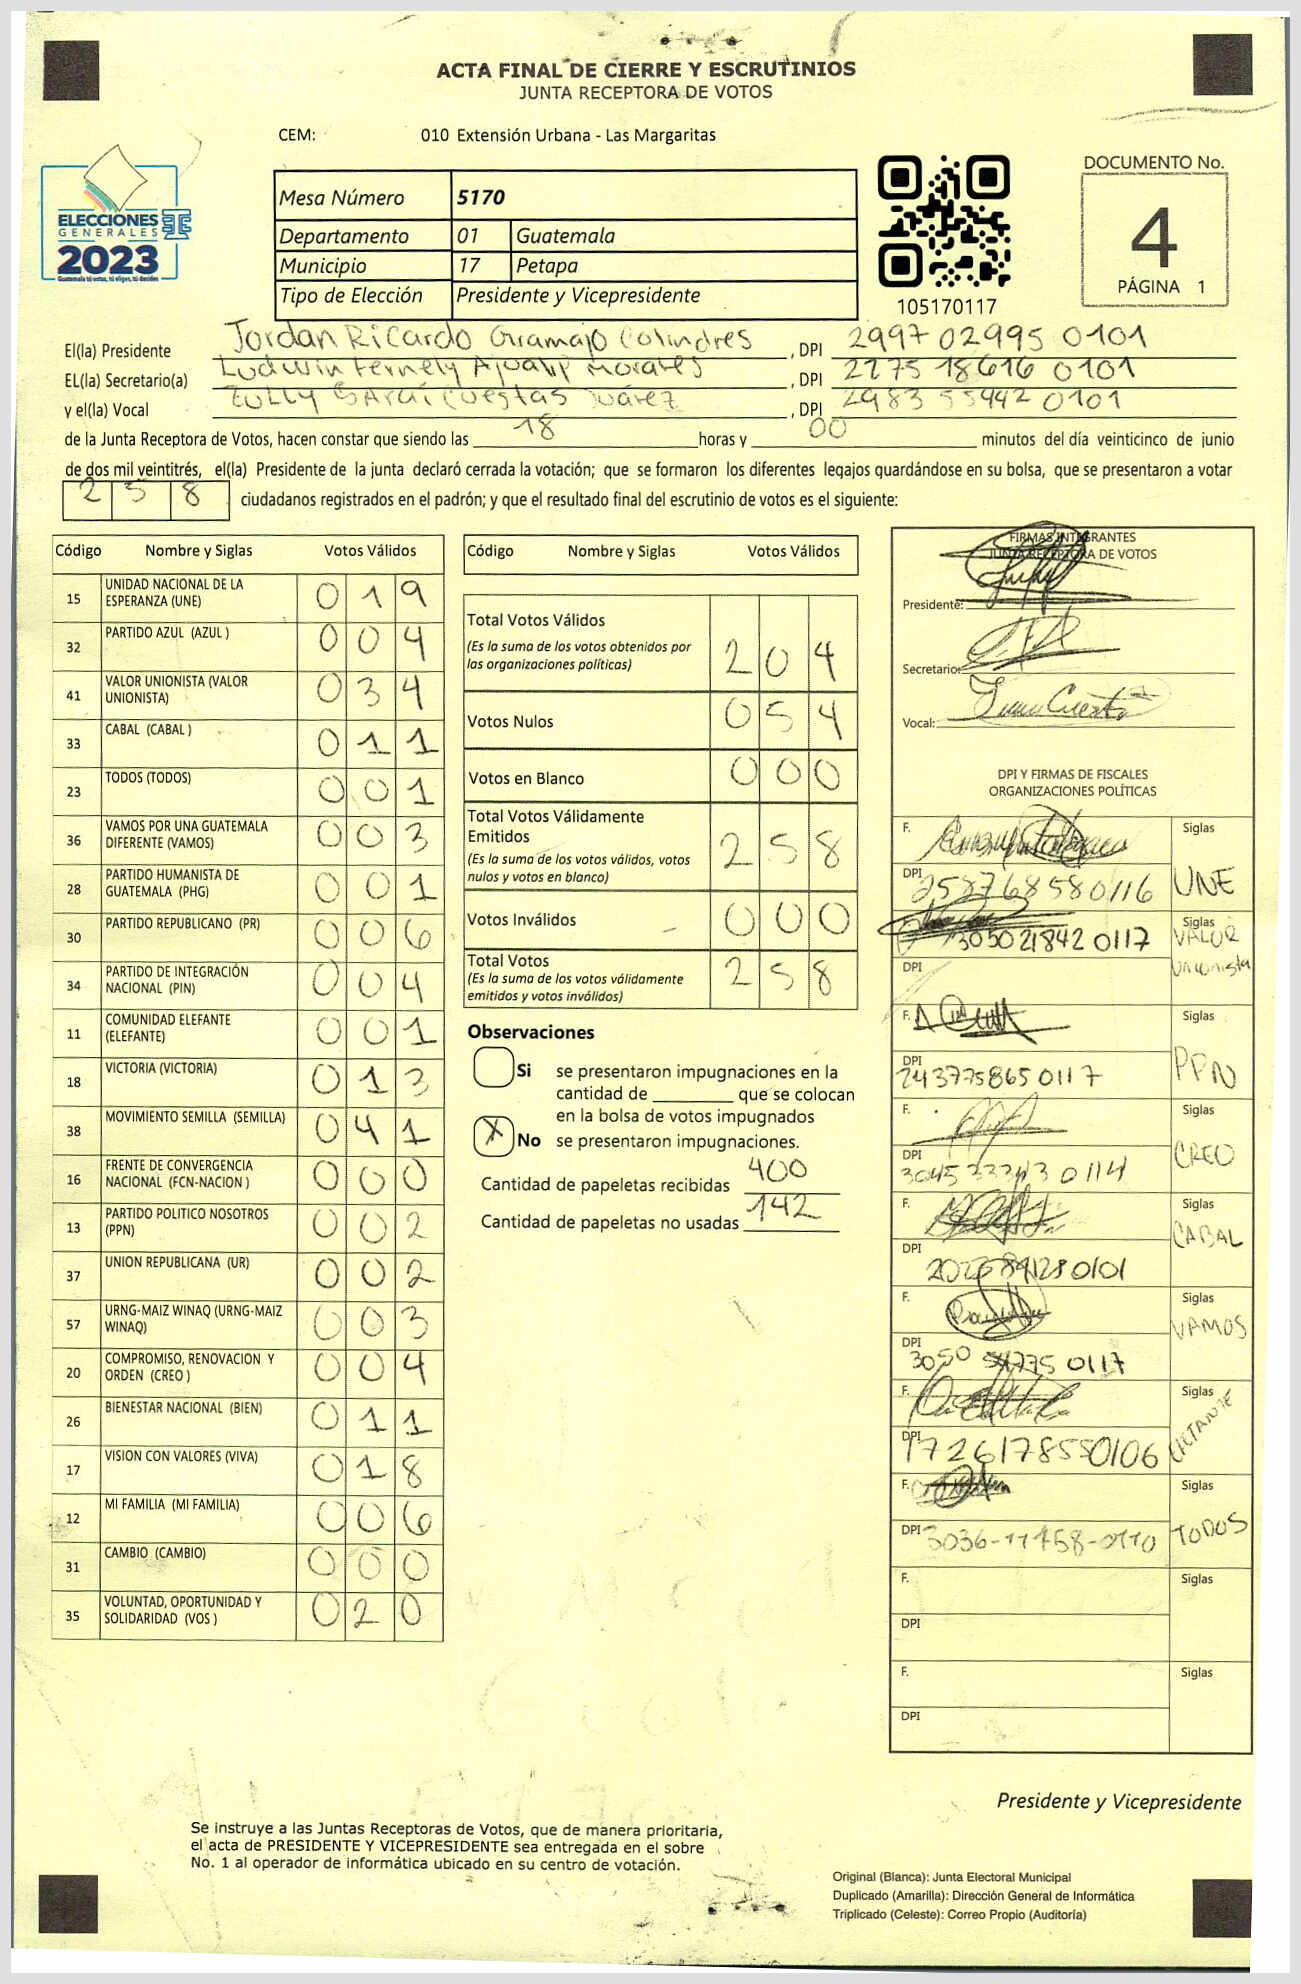 ACTA FINAL DE CIERRE Y ESCRUTINIOS
JUNTA RECEPTORA DE VOTOS
CEM: 010 Extensión Urbana - Las Margaritas
ELECCIONES
GENERALES
2023
Guatemala tú votas, tú eliges, tú decides
Mesa Número 5170
Departamento 01 Guatemala
Municipio 17 Petapa
Tipo de Elección Presidente y Vicepresidente
105170117
DOCUMENTO No.
4
PÁGINA 1
El(la) Presidente Jordan Ricardo Gramajo Colindres , DPI 2997 02995 0101
EL(la) Secretario(a) Ludwin Fernely Morales , DPI 2275 18616 0101
y el(la) Vocal Zully Saraí Cuestas Juárez , DPI 2983 55942 0101
de la Junta Receptora de Votos, hacen constar que siendo las 18 horas y 00 minutos del día veinticinco de junio
de dos mil veintitrés, el(la) Presidente de la junta declaró cerrada la votación; que se formaron los diferentes legajos guardándose en su bolsa, que se presentaron a votar
258 ciudadanos registrados en el padrón; y que el resultado final del escrutinio de votos es el siguiente:
Código Nombre y Siglas Votos Válidos
15 UNIDAD NACIONAL DE LA ESPERANZA (UNE) 0 1 9
32 PARTIDO AZUL (AZUL ) 0 0 4
41 VALOR UNIONISTA (VALOR UNIONISTA) 0 3 4
33 CABAL (CABAL ) 0 1 1
23 TODOS (TODOS) 0 0 1
36 VAMOS POR UNA GUATEMALA DIFERENTE (VAMOS) 0 0 3
28 PARTIDO HUMANISTA DE GUATEMALA (PHG) 0 0 1
30 PARTIDO REPUBLICANO (PR) 0 0 6
34 PARTIDO DE INTEGRACIÓN NACIONAL (PIN) 0 0 4
11 COMUNIDAD ELEFANTE (ELEFANTE) 0 0 1
18 VICTORIA (VICTORIA) 0 1 3
38 MOVIMIENTO SEMILLA (SEMILLA) 0 4 1
16 FRENTE DE CONVERGENCIA NACIONAL (FCN-NACION ) 0 0 0
13 PARTIDO POLITICO NOSOTROS (PPN) 0 0 2
37 UNION REPUBLICANA (UR) 0 0 2
57 URNG-MAIZ WINAQ (URNG-MAIZ WINAQ) 0 0 3
20 COMPROMISO, RENOVACION Y ORDEN (CREO ) 0 0 4
26 BIENESTAR NACIONAL (BIEN) 0 1 1
17 VISION CON VALORES (VIVA) 0 1 8
12 MI FAMILIA (MI FAMILIA) 0 0 6
31 CAMBIO (CAMBIO) 0 0 0
35 VOLUNTAD, OPORTUNIDAD Y SOLIDARIDAD (VOS ) 0 2 0
Código Nombre y Siglas Votos Válidos
Total Votos Válidos 2 0 4
(Es la suma de los votos obtenidos por
las organizaciones políticas)
Votos Nulos 0 5 4
Votos en Blanco 0 0 0
Total Votos Válidamente
Emitidos 2 5 8
(Es la suma de los votos válidos, votos
nulos y votos en blanco)
Votos Inválidos 0 0 0
Total Votos 2 5 8
(Es la suma de los votos válidamente
emitidos y votos inválidos)
Observaciones
Si se presentaron impugnaciones en la
cantidad de ________ que se colocan
en la bolsa de votos impugnados
X No se presentaron impugnaciones.
Cantidad de papeletas recibidas 400
Cantidad de papeletas no usadas 142
FIRMAS INTEGRANTES
JUNTA RECEPTORA DE VOTOS
Presidente:
Secretario:
Vocal:
DPI Y FIRMAS DE FISCALES
ORGANIZACIONES POLÍTICAS
F. Siglas
DPI 2587685800116 UNE
Siglas
305021842 0117 VALOR Unionista
DPI
F. Siglas
DPI 2437758650117 PPN
F. Siglas
DPI CREO
F. Siglas
DPI CABAL
F. Siglas
DPI VAMOS
F. Siglas
DPI 1726178550106
F. Siglas
DPI TODOS
F. Siglas
DPI
F. Siglas
DPI
Presidente y Vicepresidente
Se instruye a las Juntas Receptoras de Votos, que de manera prioritaria,
el acta de PRESIDENTE Y VICEPRESIDENTE sea entregada en el sobre
No. 1 al operador de informática ubicado en su centro de votación.
Original (Blanca): Junta Electoral Municipal
Duplicado (Amarilla): Dirección General de Informática
Triplicado (Celeste): Correo Propio (Auditoría)